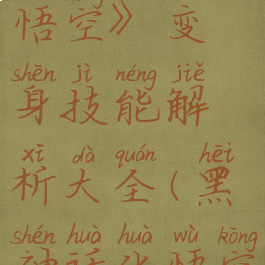 悟空》变
shēn jì néng jiě
身技能解
xī dà quán hēi
析大全(黑
shén huà huà wù kōng
神话化悟空